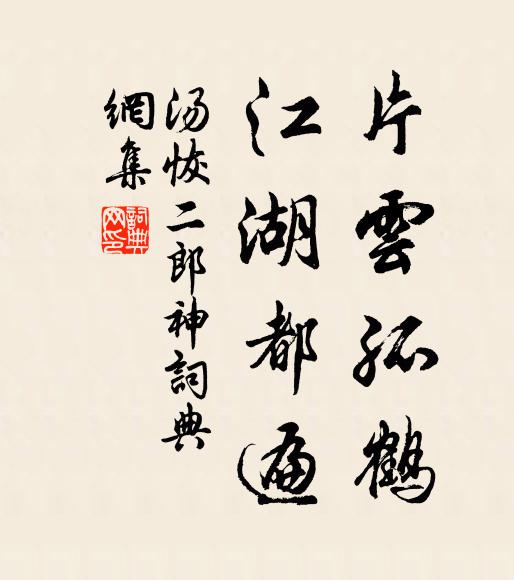 片雲孤鶴
江湖都遍
汤恢二郎神詞典
網集
詞典
网印